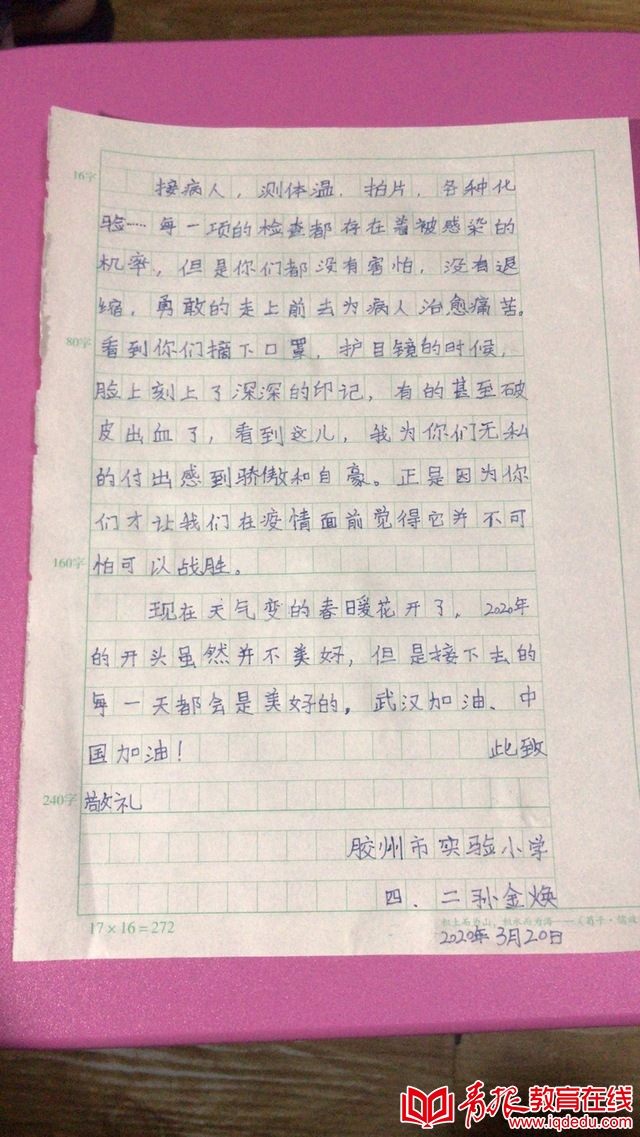 16字
接病人，测体温．拍片，各种化
验……每一项的检查都存在着被感染的
机率，但是你们都没有害怕，没有退
缩，勇敢的走上前去为病人治愈痛苦。
80字
看到你们摘下口罩，护目镜的时候，
脸上刻上了深深的印记，有的甚至破
皮出血了，看到这儿，我为你们无私
的付出感到骄傲和自豪。正是因为你
们才让我们在疫情面前觉得它并不可
160字
怕可以战胜。
现在天气变的春暖花开了，2020年
的开头虽然并不美好，但是接下去的
每一天都会是美好的，武汉加油、中
国加油！ 此致
240字
敬礼
胶州市实验小学
四．二孙金焕
17×16=272
积土而为山，积水而为海——《荀子·儒效
2020年3月20日
青报教育在线
www.iqdedu.com